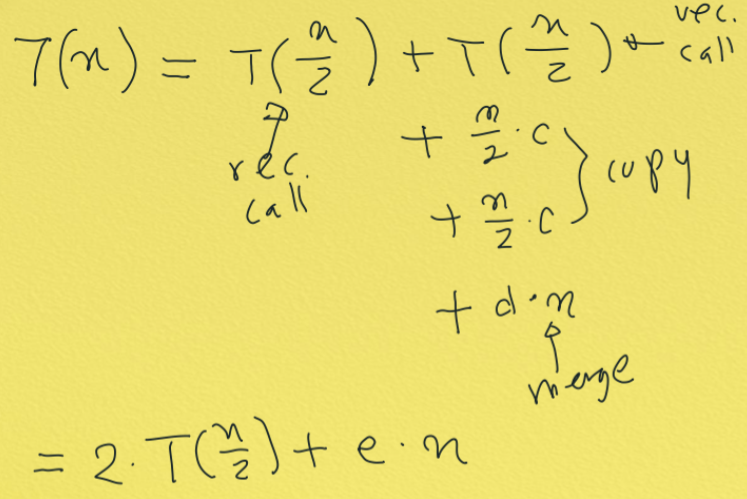 T(n) = T(n/2) + T(n/2) ← rec. call
rec. call
+ n/2 · c
+ n/2 · c } copy
+ d · n
merge
= 2 · T(n/2) + e · n